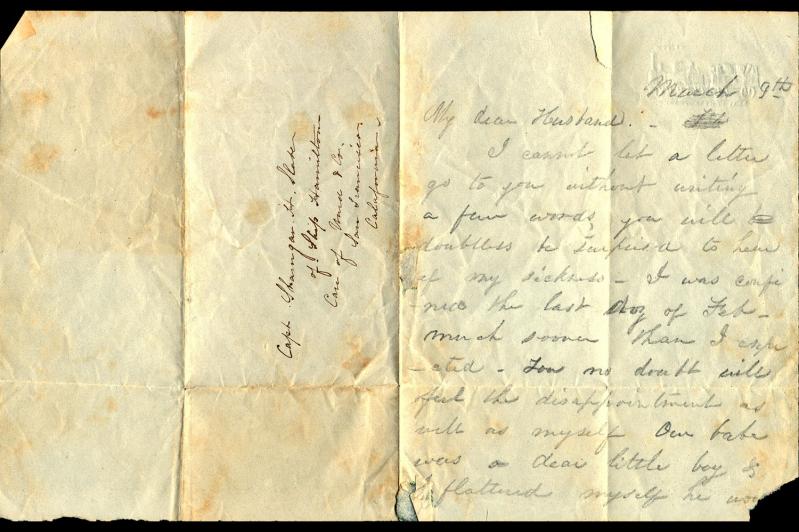 Capt Shamgar H. Slate
of Ship Hamilton
Care of Ward & Co.
San Francisco
Calafornia
March 9th
My dear Husband. -
I cannot let a letter
go to you without writing
a few words, you will
doubtless be surprised to hear
of my sickness - I was confi
-ned the last day of Feb -
much sooner than I expe
-cted - You no doubt will
feel the disappointment as
well as myself Our babe
was a dear little boy &
I flattered myself he